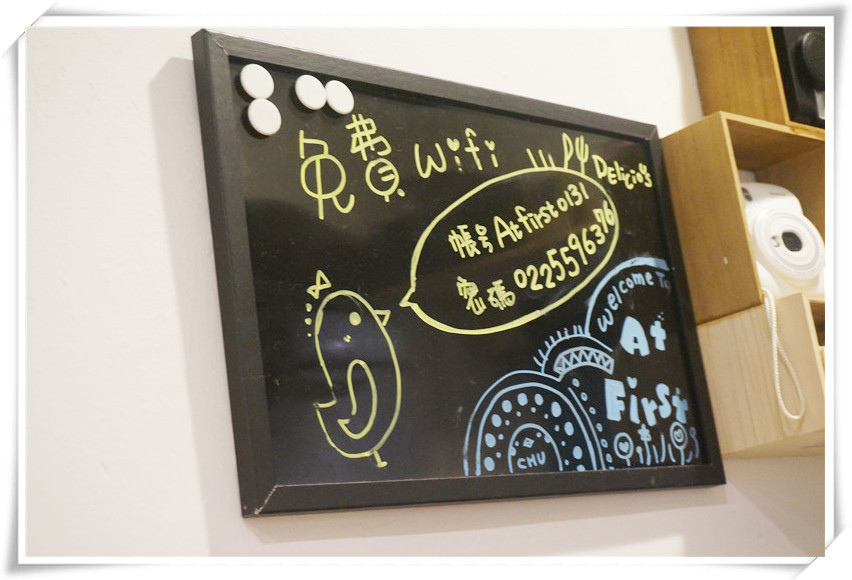 免費 wifi
DELicios
帳号 Atfirst0131
密碼 0225596376
Welcome To
At
First
CHU